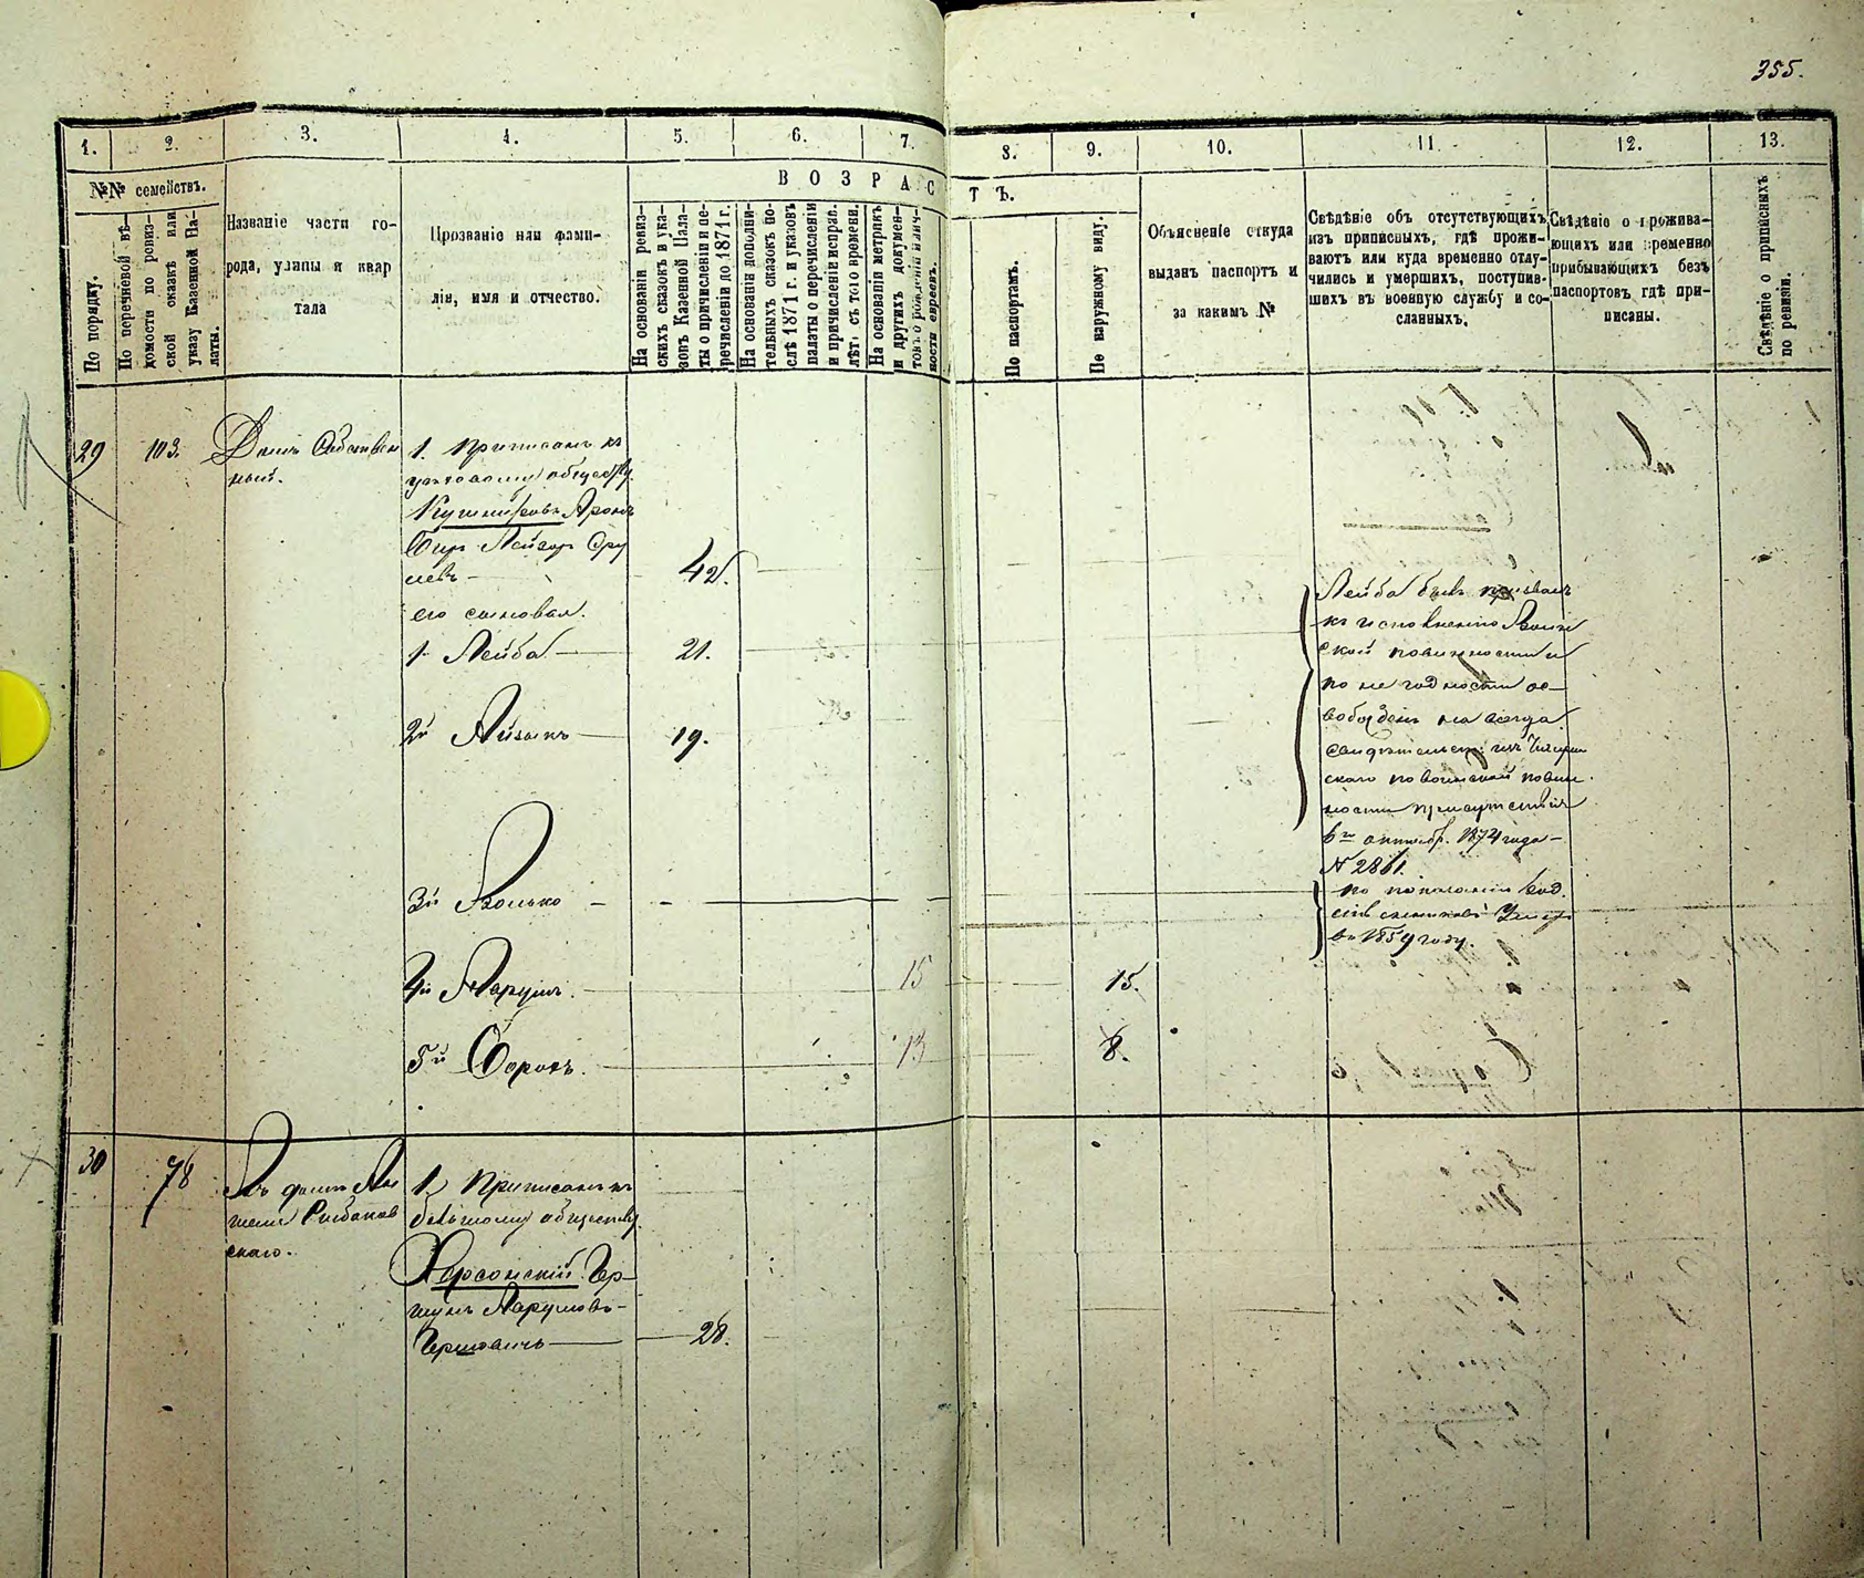 355.
1.
2.
3.
4.
5.
6.
7.
8.
9.
10.
11.
12.
13.
№№ семействъ.
ВОЗРАСТЪ.
По порядку.
По перечневой вѣ-
домости по ревиз-
ской сказкѣ или
указу Казенной Па-
латы.
Названіе части го-
рода, улицы и квар
тала
Прозваніе или фами-
лія, имя и отчество.
На основаніи ревиз-
скихъ сказокъ и ука-
зовъ Казенной Пала-
ты о причисленіи и пе-
речисленіи до 1871 г.
На основаніи дополни-
тельныхъ сказокъ по-
слѣ 1871 г. и указовъ
палаты о перечисленіи
и причисленіе исправ.
лѣт. съ того времени.
На основаніи метрикъ
и другихъ докумен-
товъ о рожденіи и лич-
ности евреевъ.
По паспортамъ.
По наружному виду.
Объясненіе откуда
выданъ паспортъ и
за какимъ №
Свѣдѣніе объ отсутствующихъ
изъ приписныхъ, гдѣ прожи-
ваютъ или куда временно отлу-
чились и умершихъ, поступив-
шихъ въ военную службу и со-
сланныхъ.
Свѣдѣніе о прожива-
ющихъ или временно
прибывающихъ безъ
паспортовъ гдѣ при-
писаны.
Свѣдѣніе о приписныхъ
по ревизіи.
29
103.
Домъ Собствен
ный.
1. Приписанъ къ
обществу.
Кушнировъ Аронъ
Беръ Лейзор Сру
левъ —
42.
его сыновья.
1. Лейба —
21.
2й Айзикъ —
19.
3й Волько —
4й Нарумъ. —
15
15.
5й Борохъ. —
13
8.
Лейба былъ призванъ
къ исполненію Воин
ской повинности и
по не годности ос-
вобожденъ на всегда
свидѣтельст.
скаго по воинской повин.
ности присутствія
октябр. 1874 года —
№ 2861.
по показанію
въ 1859 году.
30
78
Въ домѣ
Рыбаков
скаго.
1. Приписанъ къ
обществу
Херсонскій Гер-
шунъ Нарумовъ-
Гершовичъ —
28.